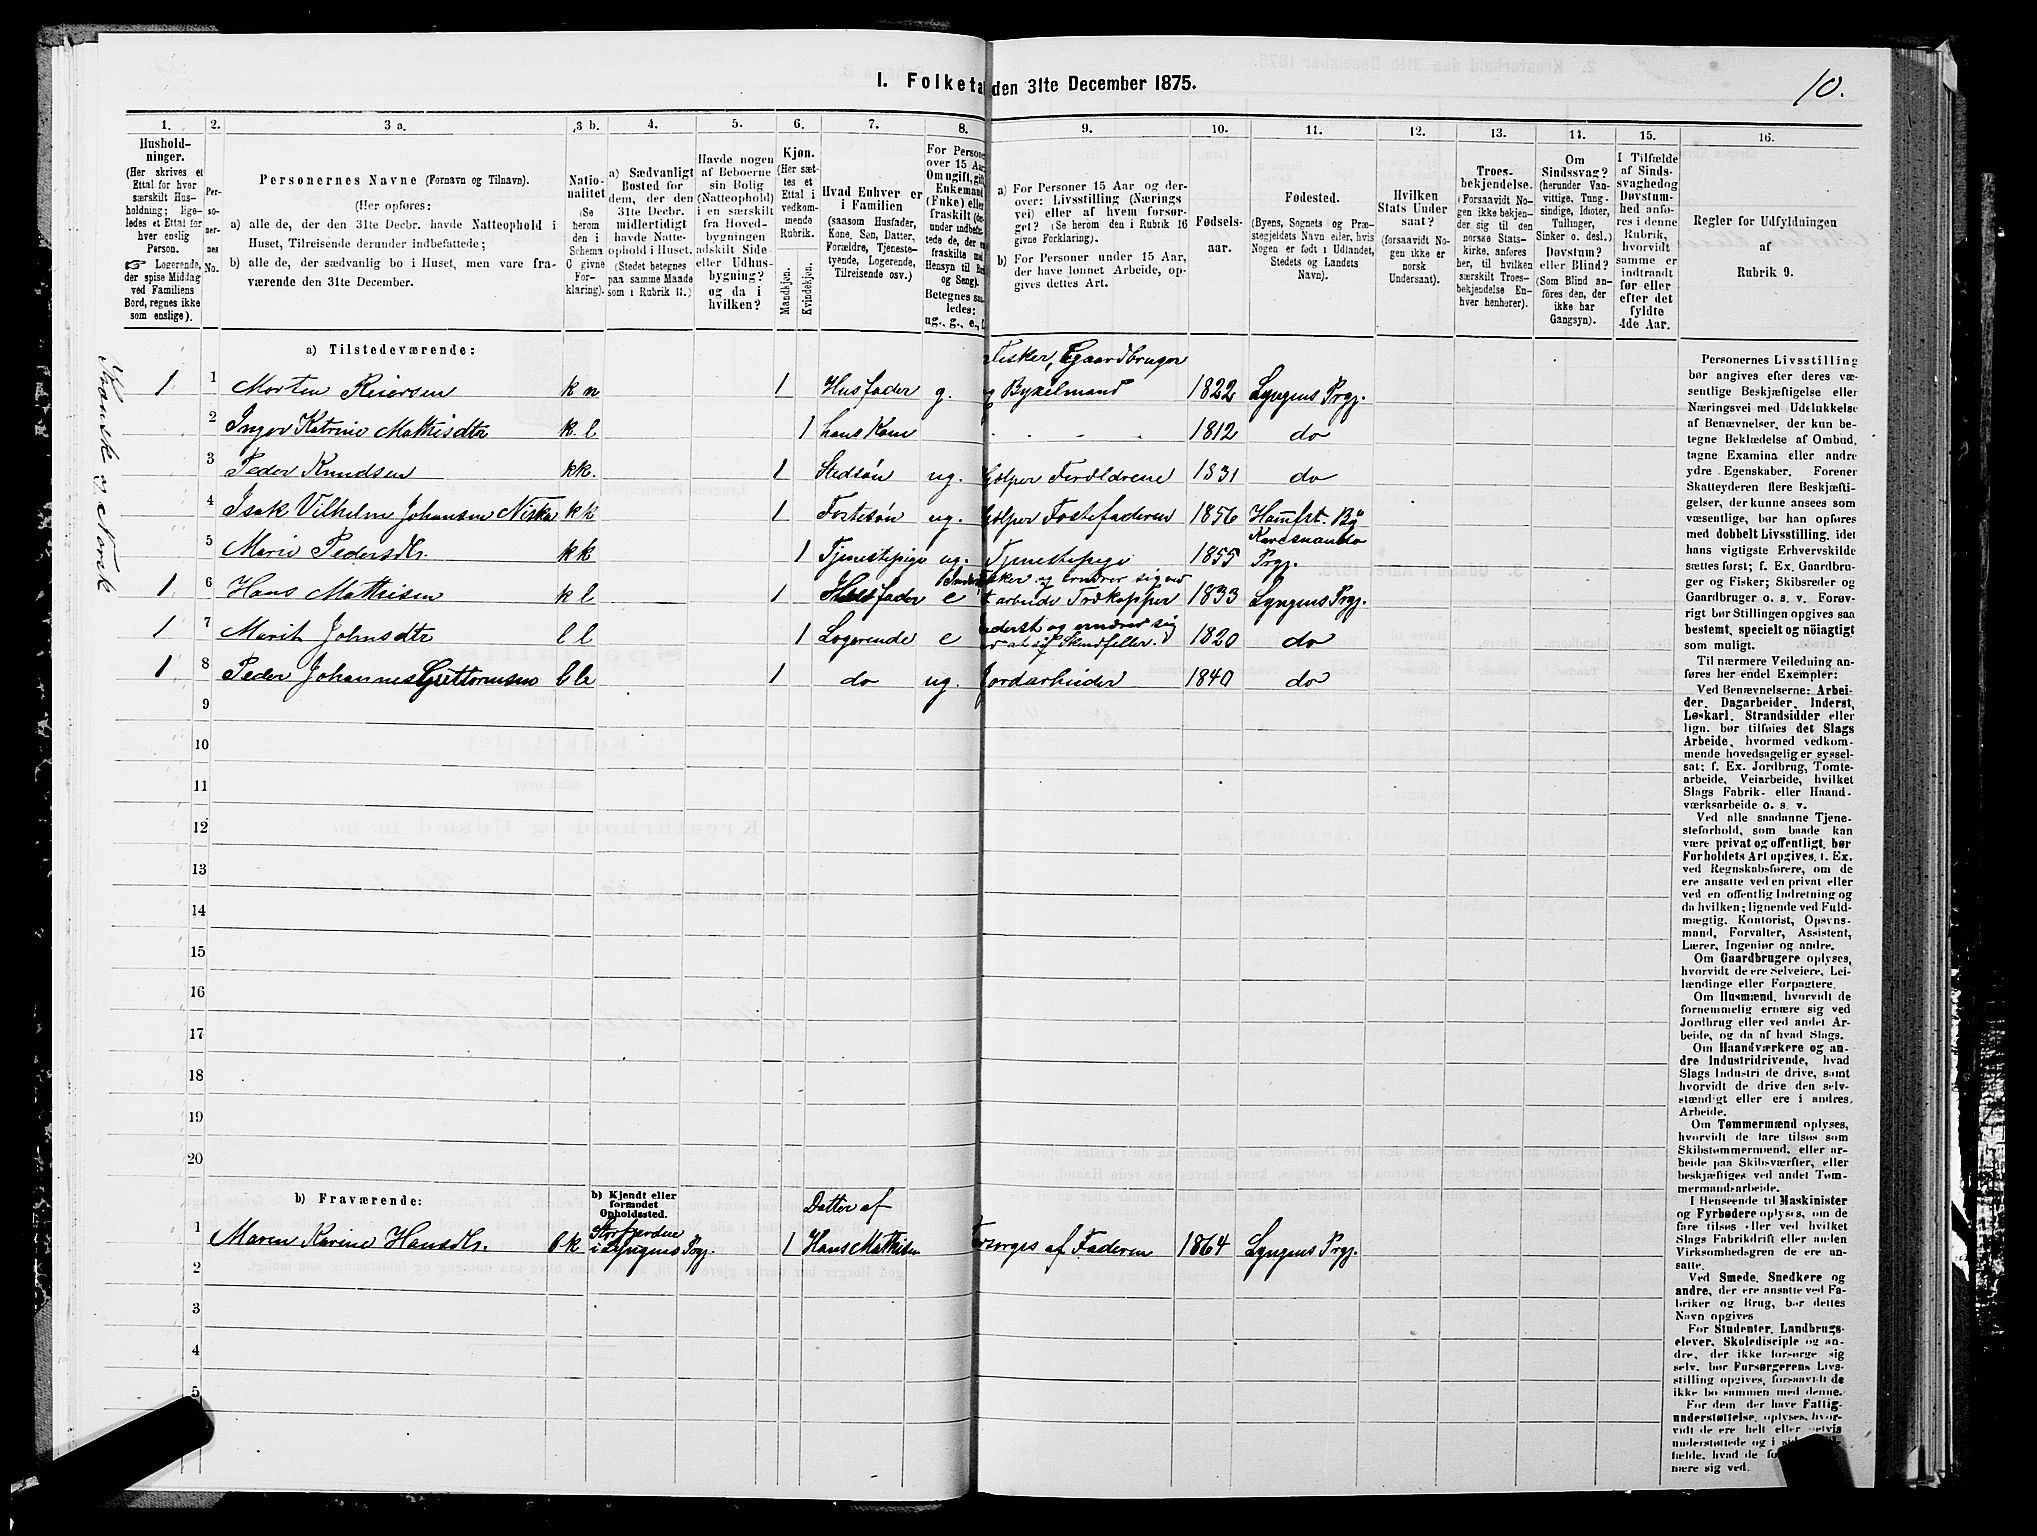 10.
I. Folketal den 31te December 1875.
1. 2. 3 a. 3 b. 4. 5. 6. 7. 8. 9. 10. 11. 12. 13. 14. 15. 16.
Hushold-
ninger.
(Her skrives et
Ettal for hver
særskilt Hus-
holdning; lige-
ledes et Ettal for
hver enslig
Person.
☞ Logerende,
der spise Middag
ved Familiens
Bord, regnes ikke
som enslige).
Per-
so-
ner-
nes
No.
Personernes Navne (Fornavn og Tilnavn).
(Her opføres:
a) alle de, der den 31te Decbr. havde Natteophold i
Huset, Tilreisende derunder indbefattede;
b) alle de, der sædvanlig bo i Huset, men vare fra-
værende den 31te December.
Natio-
nalitet
(Se
herom
den i
Schema
C givne
For-
klaring).
a) Sædvanligt
Bosted for
dem, der den
31te Decbr.
midlertidigt
havde Natte-
ophold i Huset.
(Stedet betegnes
paa samme Maade
som i Rubrik 11.)
Havde nogen
af Beboerne
sin Bolig
(Natteophold)
i en særskilt
fra Hoved-
bygningen
adskilt Side-
eller Udhus-
bygning?
og da i
hvilken?
Kjøn.
(Her sæt-
tes et
Ettal i
vedkom-
mende
Rubrik.
Mandkjøn.
Kvindekjøn.
Hvad Enhver er
i Familien
(saasom Husfader,
Kone, Søn, Datter,
Forældre, Tjeneste-
tyende, Logerende,
Tilreisende osv.)
For Personer
over 15 Aar:
Om ugift, gift,
Enkemand
(Enke) eller
fraskilt
Betegnes saa-
ledes:
ug., g., e.,
a) For Personer 15 Aar og der-
over: Livsstilling (Nærings-
vei) eller af hvem forsør-
get? (Se herom den i Rubrik 16
givne Forklaring).
b) For Personer under 15 Aar,
der have lønnet Arbeide, op-
gives dettes Art.
Fødsels-
aar.
Fødested.
(Byens, Sognets og Præ-
stegjeldets Navn eller, hvis
Nogen er født i Udlandet,
Stedets og Landets
Navn).
Hvilken
Stats Under-
saat?
(forsaavidt No-
gen ikke er
norsk
Undersaat).
Troes-
bekjendelse.
(Forsaavidt No-
gen ikke bekjen-
der sig til den
norske Stats-
kirke, anføres
her, til hvilken
særskilt Troes-
bekjendelse En-
hver henhører).
Om
Sindssvag?
(herunder Van-
vittige, Tung-
sindige, Idioter,
Tullinger,
Sinker o. desl.)
Døvstum?
eller Blind?
(Som Blind an-
føres den, der
ikke har
Gangsyn).
I Tilfælde
af Sinds-
svaghed og
Døvstum-
hed anfø-
res i denne
Rubrik,
hvorvidt
samme er
indtraadt
før eller
efter det
fyldte
4de Aar.
Regler for Udfyldningen
af
Rubrik 9.
Kvænsk og Norsk
a) Tilstedeværende:
1 1 Morten Reiersen k n 1 Husfader g. Fisker, Gaardbruger og Byxelmand 1822 Lyngens Prgj.
2 Inger Katrine Mathisdtr k. l 1 hans Kone 1812 do
3 Peder Knudsen kk. 1 Stedsøn ug. hjelper Forældrene 1831 do
4 Isak Vilhelm Johansen Niska k k 1 Fostesøn ug. hjelper Fostefaderen 1856 Hamfst. By
5 Marie Pedersdtr. k k 1 Tjenestepige ug. Tjenestepige 1855 Karesuando Prgj.
1 6 Hans Mathisen k l 1 Husfader e Fisker og ernærer sig ved at arbeide Trækopper 1833 Lyngens Prgj.
1 7 Marit Johnsdtr l l 1 Logerende e Inderst og ernærer sig ved at sy Skindfeller. 1820 do
1 8 Peder Johannes Guttormsen l l 1 do ug. Jordarbeider 1840 do
9
10
11
12
13
14
15
16
17
18
19
20
b) Fraværende:
b) Kjendt eller
formodet
Opholdssted.
1 Maren Karine Hansdtr. l k Storfjorden i Lyngens Prgj. 1 Datter af Hans Mathisen Forsørges af Faderen 1864 Lyngens Prgj.
2
3
4
5
Personernes Livsstilling
bør angives efter deres væ-
sentlige Beskjæftigelse eller
Næringsvei med Udelukkelse
af Benævnelser, der kun be-
tegne Beklædelse af Ombud,
tagne Examina eller andre
ydre Egenskaber. Forener
Skatteyderen flere Beskjæfti-
gelser, der kunne ansees som
væsentlige, bør han opføres
med dobbelt Livsstilling, idet
hans vigtigste Erhvervskilde
sættes først; f. Ex. Gaardbru-
ger og Fisker; Skibsreder og
Gaardbruger o. s. v. Forøv-
rigt bør Stillingen opgives saa
bestemt, specielt og nøiagtigt
som muligt.
Til nærmere Veiledning an-
føres her endel Exempler:
Ved Benævnelserne: Arbei-
der, Dagarbeider, Inderst,
Løskarl, Strandsidder eller
lign. bør tilføies det Slags
Arbeide, hvormed vedkom-
mende hovedsagelig er syssel-
sat; f. Ex. Jordbrug, Tomte-
arbeide, Veiarbeide, hvilket
Slags Fabrik- eller Haand-
værksarbeide o. s. v.
Ved alle saadanne Tjene-
steforhold, som baade kan
være privat og offentligt, bør
Forholdets Art opgives, f. Ex.
ved Regnskabsførere, om de
ere ansatte ved en privat eller
ved en offentlig Indretning og
da hvilken; lignende ved Fuld-
mægtig, Kontorist, Opsyns-
mand, Forvalter, Assistent,
Lærer, Ingeniør og andre.
Om Gaardbrugere oplyses,
hvorvidt de ere Selveiere, Lei-
lændinge eller Forpagtere.
Om Husmænd, hvorvidt de
fornemmelig ernære sig ved
Jordbrug eller ved andet Ar-
beide, og da af hvad Slags.
Om Haandværkere og an-
dre Industridrivende, hvad
Slags Industri de drive, samt
hvorvidt de drive den selv-
stændigt eller ere i andres
Arbeide.
Om Tømmermænd oplyses,
hvorvidt de fare tilsøs som
Skibstømmermænd, eller ar-
beide paa Skibsværfter, eller
beskjæftiges ved andet Tøm-
mermandsarbeide.
I Henseende til Maskinister
og Fyrbødere oplyses, om de
fare tilsøs eller ved hvilket
Slags Fabrikdrift eller anden
Virksomhedsgren de ere an-
satte.
Ved Smede, Snedkere og
andre, der ere ansatte ved Fa-
briker og Brug, bør dettes
Navn opgives
For Studenter, Landbrugs-
elever, Skoledisciple og an-
dre, der ikke forsørge sig
selv, bør Forsørgerens Livs-
stilling opgives, forsaavidt de
ikke bo sammen med denne.
For dem, der have Fattig-
understøttelse, oplyses, hvor-
vidt de ere helt eller
understøttede og i
fælde, hvad de
nære sig ved.